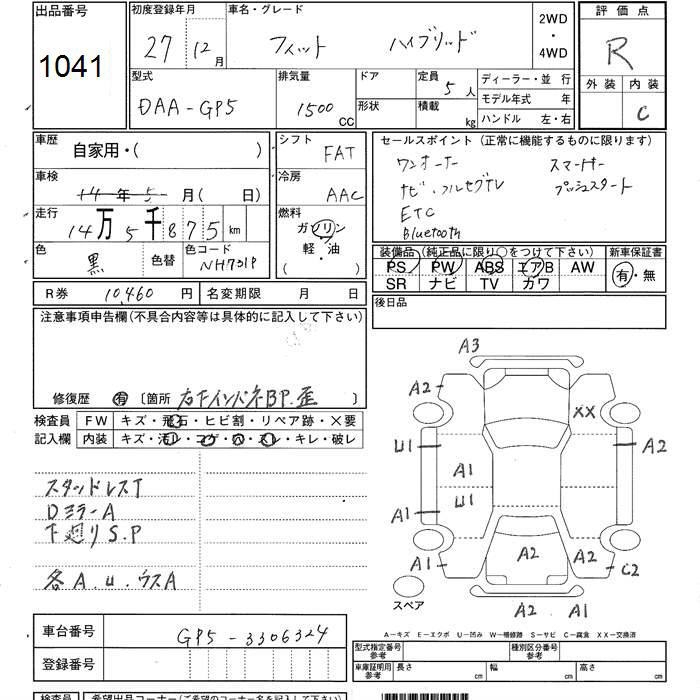 出品番号 1041
初度登録年月 27 12月
車名・グレード フィット ハイブリッド
2WD・4WD
評価点 R
外装 内装 C
型式 DAA-GP5
排気量 1500 CC
ドア 形状
定員 5人
積載 kg
ディーラー・並行
モデル年式 年
ハンドル 左・右
車歴 自家用・( )
シフト FAT
セールスポイント (正常に機能するものに限ります)
ワンオーナー スマートキー
ナビ・フルセグTV プッシュスタート
ETC
Bluetooth
車検 14年5月( 日)
冷房 AAC
走行 14万5千875km
燃料 ガソリン 軽・油 ( )
色 黒 色替 色コード NH731P
装備品 (純正品に限り○をつけて下さい)
新車保証書 有・無
PS PW ABS エアB AW
SR ナビ TV カワ
R券 10,460円 名変期限 月 日
後日品
注意事項申告欄(不具合内容等は具体的に記入して下さい)
修復歴 有 〔箇所 右下インパネBP.歪 〕
検査員記入欄
FW キズ・飛石・ヒビ割・リペア跡・×要
内装 キズ・汚レ・コゲ・穴・スレ・キレ・破レ
スタッドレスT
DミラーA
下廻りS.P
各A.U.ウスA
A3
A2 XX
U1 A2
A1
U1
A1
A2 A2 C2
A2 A1
スペア
A-キズ E-エクボ U-凹み W-補修跡 S-サビ C-腐食 XX-交換済
車台番号 GP5-3306324
登録番号
型式指定番号 参考 種別区分番号 参考
車庫証明用 参考 長さ cm 幅 cm 高さ cm
検査員 希望出品コーナー(ご希望のコーナー名を記入して下さい)